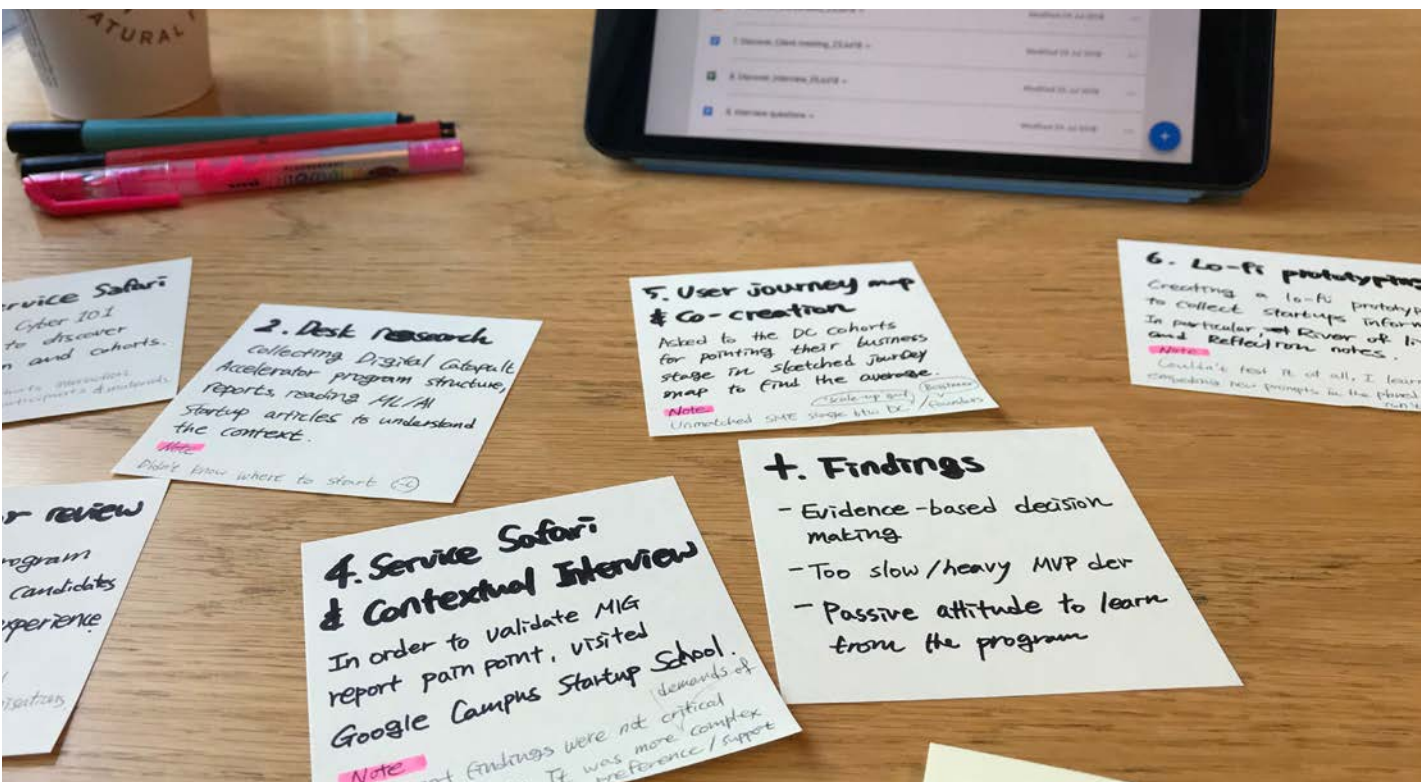 ATURAL
7. Discover_Client meeting_
8. Discover_Interview_
9. Interview questions
Service Safari
Cyber 101
to discover
and cohorts.
2. Desk research
Collecting Digital Catapult
Accelerator program structure,
reports, reading ML/AI
Startup articles to understand
the context.
Note
Didn't know where to start
5. User journey map
& Co-creation
Asked to the DC cohorts
for pointing their business
stage in sketched journey
map to find the average.
Note
Unmatched SME stage btw DC / founders
6. Lo-fi prototyping
Creating a lo-fi
to collect startups
In particular, River of
and Reflection notes.
Note
Couldn't test it at all, I
new prompts in the
review
program
Candidates
experience
4. Service Safari
& Contextual Interview
In order to validate MIG
report pain point, visited
Google Campus Startup School.
Note
demands of
findings were not critical
It was more complex
preference / support
+. Findings
- Evidence-based decision
making
- Too slow/heavy MVP dev
- Passive attitude to learn
from the program